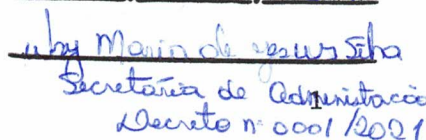 Maria de Jesus Silva
Secretária de Administração
Decreto nº 0001/2021
1